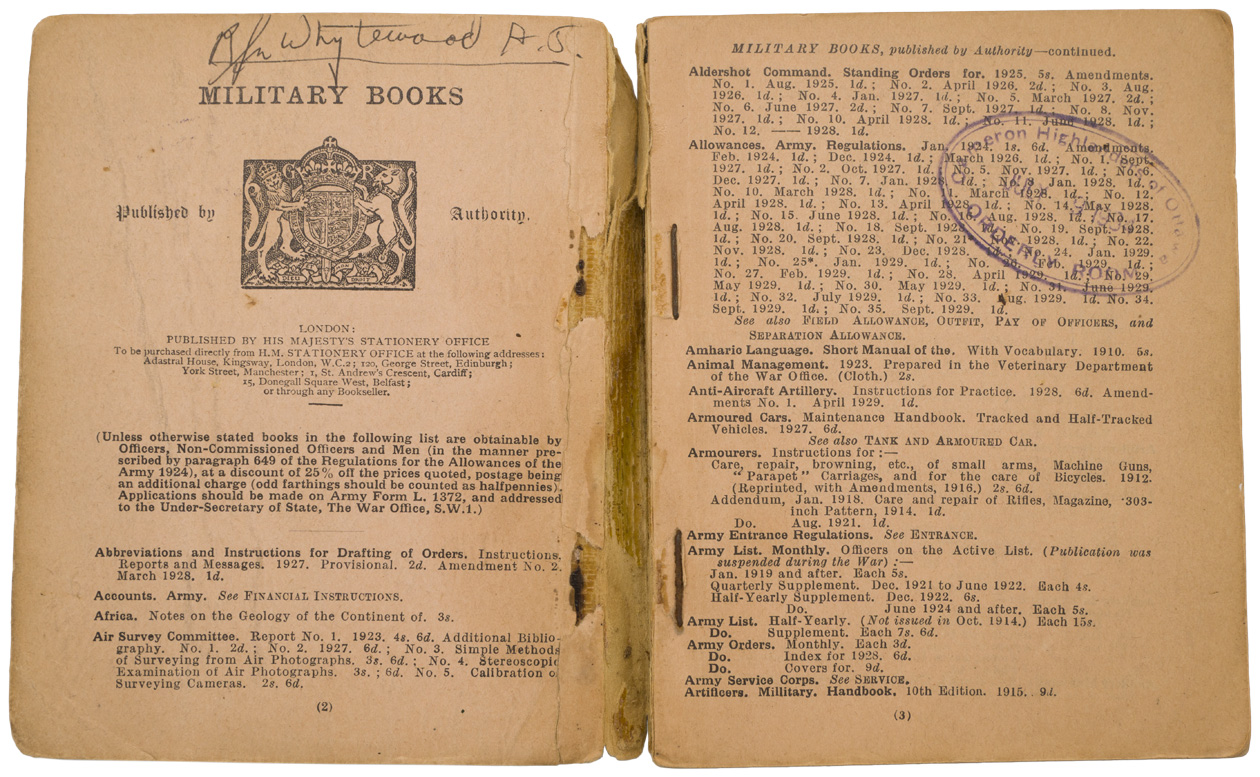 Whytewood A. S.
MILITARY BOOKS
G R
Published by Authority.
LONDON:
PUBLISHED BY HIS MAJESTY'S STATIONERY OFFICE
To be purchased directly from H.M. STATIONERY OFFICE at the following addresses:
Adastral House, Kingsway, London, W.C.2; 120, George Street, Edinburgh;
York Street, Manchester; 1, St. Andrew's Crescent, Cardiff;
15, Donegall Square West, Belfast;
or through any Bookseller.
(Unless otherwise stated books in the following list are obtainable by
Officers, Non-Commissioned Officers and Men (in the manner pre-
scribed by paragraph 649 of the Regulations for the Allowances of the
Army 1924), at a discount of 25% off the prices quoted, postage being
an additional charge (odd farthings should be counted as halfpennies).
Applications should be made on Army Form L. 1372, and addressed
to the Under-Secretary of State, The War Office, S.W.1.)
Abbreviations and Instructions for Drafting of Orders. Instructions,
Reports and Messages. 1927. Provisional. 2d. Amendment No. 2.
March 1928. 1d.
Accounts. Army. See FINANCIAL INSTRUCTIONS.
Africa. Notes on the Geology of the Continent of. 3s.
Air Survey Committee. Report No. 1. 1923. 4s. 6d. Additional Biblio-
graphy. No. 1. 2d.; No. 2. 1927. 6d.; No. 3. Simple Methods
of Surveying from Air Photographs. 3s. 6d.; No. 4. Stereoscopic
Examination of Air Photographs. 3s.; 6d. No. 5. Calibration of
Surveying Cameras. 2s. 6d.
(2)
MILITARY BOOKS, published by Authority—continued.
Aldershot Command. Standing Orders for. 1925. 5s. Amendments.
No. 1. Aug. 1925. 1d.; No. 2. April 1926. 2d.; No. 3. Aug.
1926. 1d.; No. 4. Jan. 1927. 1d.; No. 5. March 1927. 2d.;
No. 6. June 1927. 2d.; No. 7. Sept. 1927. 1d.; No. 8. Nov.
1927. 1d.; No. 10. April 1928. 1d.; No. 11. June 1928. 1d.;
No. 12. —— 1928. 1d.
Allowances. Army. Regulations. Jan. 1924. 1s. 6d. Amendments.
Feb. 1924. 1d.; Dec. 1924. 1d.; March 1926. 1d.; No. 1. Sept.
1927. 1d.; No. 2. Oct. 1927. 1d.; No. 5. Nov. 1927. 1d.; No. 6.
Dec. 1927. 1d.; No. 7. Jan. 1928. 1d.; No. 9. Jan. 1928. 1d.;
No. 10. March 1928. 1d.; No. 11. March 1928. 1d.; No. 12.
April 1928. 1d.; No. 13. April 1928. 1d.; No. 14. May 1928.
1d.; No. 15. June 1928. 1d.; No. Aug. 1928. 1d.; No. 17.
Aug. 1928. 1d.; No. 18. Sept. 1928. 1d.; No. 19. Sept. 1928.
1d.; No. 20. Sept. 1928. 1d.; No. 21 1928. 1d.; No. 22.
Nov. 1928. 1d.; No. 23. Dec. 1928. 1d.; No. 24. Jan. 1929.
1d.; No. 25*. Jan. 1929. 1d.; No. 26. Feb. 1929. 1d.;
No. 27. Feb. 1929. 1d.; No. 28. April 1929. 1d.; No. 29.
May 1929. 1d.; No. 30. May 1929. 1d.; No. 31. June 1929.
1d.; No. 32. July 1929. 1d.; No. 33. Aug. 1929. 1d. No. 34.
Sept. 1929. 1d.; No. 35. Sept. 1929. 1d.
See also FIELD ALLOWANCE, OUTFIT, PAY OF OFFICERS, and
SEPARATION ALLOWANCE.
Cameron Highlanders of Ottawa
ORDERLY ROOM
Amharic Language. Short Manual of the. With Vocabulary. 1910. 5s.
Animal Management. 1923. Prepared in the Veterinary Department
of the War Office. (Cloth.) 2s.
Anti-Aircraft Artillery. Instructions for Practice. 1928. 6d. Amend-
ments No. 1. April 1929. 1d.
Armoured Cars. Maintenance Handbook. Tracked and Half-Tracked
Vehicles. 1927. 6d.
See also TANK AND ARMOURED CAR.
Armourers. Instructions for:—
Care, repair, browning, etc., of small arms, Machine Guns,
"Parapet" Carriages, and for the care of Bicycles. 1912.
(Reprinted, with Amendments, 1916.) 2s. 6d.
Addendum, Jan. 1918. Care and repair of Rifles, Magazine, ·303-
inch Pattern, 1914. 1d.
Do. Aug. 1921. 1d.
Army Entrance Regulations. See ENTRANCE.
Army List. Monthly. Officers on the Active List. (Publication was
suspended during the War):—
Jan. 1919 and after. Each 5s.
Quarterly Supplement. Dec. 1921 to June 1922. Each 4s.
Half-Yearly Supplement. Dec. 1922. 6s.
Do. June 1924 and after. Each 5s.
Army List. Half-Yearly. (Not issued in Oct. 1914.) Each 15s.
Do. Supplement. Each 7s. 6d.
Army Orders. Monthly. Each 3d.
Do. Index for 1928. 6d.
Do. Covers for. 9d.
Army Service Corps. See SERVICE.
Artificers. Military. Handbook. 10th Edition. 1915. 9d.
(3)